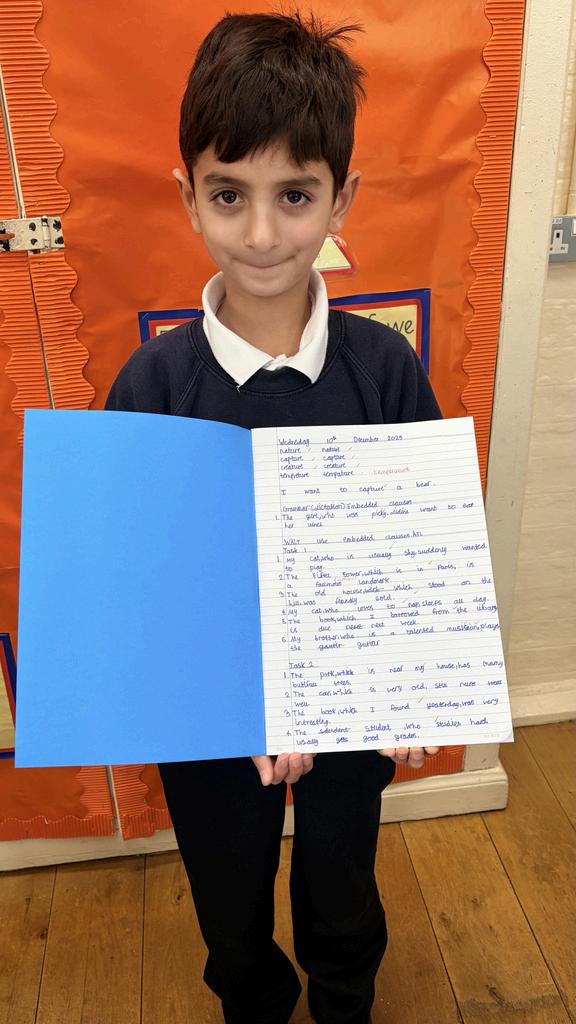 fewe
Wednesday 10th December 2025
nature nature
capture capture
creature creature
tempreture tempature temperature
I want to capture a bear.
Grammar (dictation) Embedded clauses
1. The girl, who was picky, didnt want to eat
her
WALT use embedded clauses.
Task 1
1. My cat, who is usually shy, suddenly wanted
to play.
2. The Eiffel tower, which is in Paris, is
a famous landmark.
3. The old house, which stood on the
hill, was finally sold.
4. My cat, who loves to nap, sleeps all day.
5. The book, which I borrowed from the library
is due next week.
6. My brother, who is a talented musician, plays
the guitar
Task 2
1. The park, which is near my house, has many
trees.
2. The car, which is very old, still runs
well.
3. The book, which I found yesterday, was very
intresting.
4. The student, who studies hard
usually gets good grades.